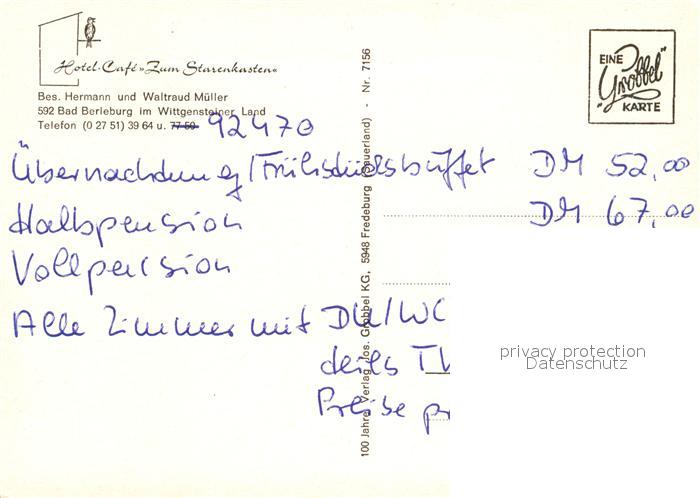 Hotel-Café »Zum Starenkasten«
Bes. Hermann und Waltraud Müller
592 Bad Berleburg im Wittgensteiner Land
Telefon (0 27 51) 39 64 u. 77 50 92470
EINE
"Grobbel"
KARTE
Übernachtung/Frühstücksbuffet DM 52,00
Halbpension DM 67,00
Vollpension
Alle Zimmer mit DU/WC
teils TV
Preise pr
100 Jahre Verlag Jos. Grobbel KG, 5948 Fredeburg (Sauerland) - Nr. 7156
privacy protection
Datenschutz